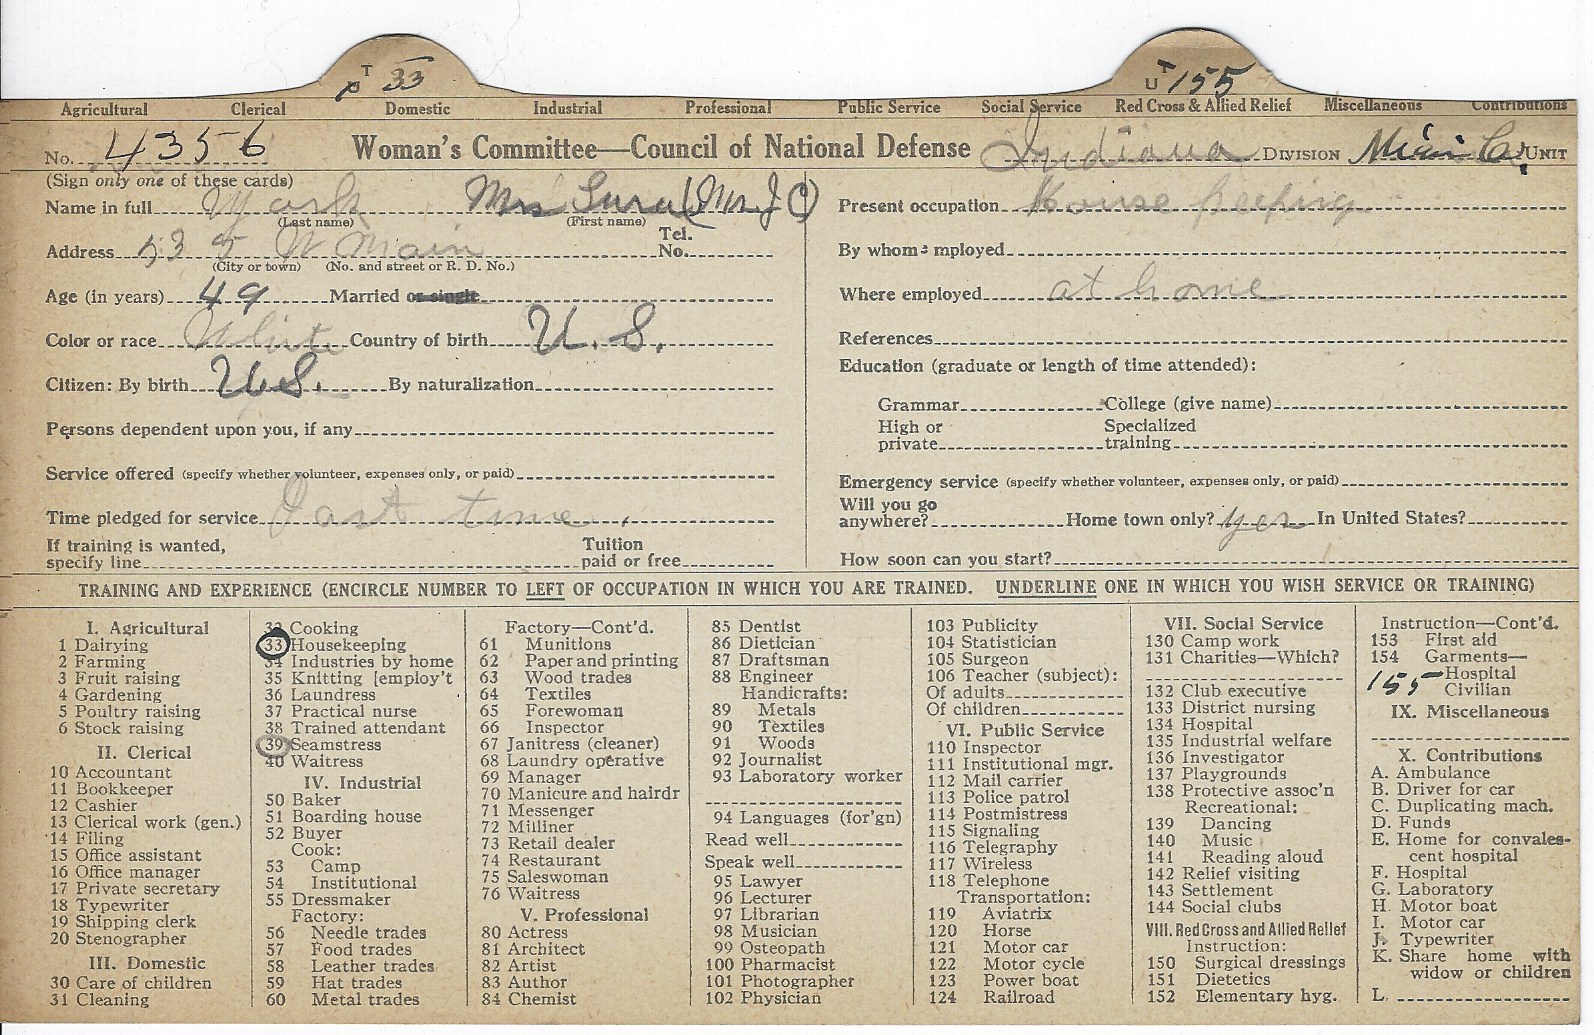 T 33
U T 155
Agricultural Clerical Domestic Industrial Professional Public Service Social Service Red Cross & Allied Relief Miscellaneous Contributions
No. 4356 Woman's Committee—Council of National Defense Indiana DIVISION Miami Co. UNIT
(Sign only one of these cards)
Name in full York Mrs Sura (Mrs J C)
(Last name) (First name)
Address 53 5 W Main Tel. No.
(City or town) (No. and street or R. D. No.)
Age (in years) 49 Married or single
Color or race White Country of birth U. S.
Citizen: By birth U.S. By naturalization
Persons dependent upon you, if any
Service offered (specify whether volunteer, expenses only, or paid)
Time pledged for service Part time
If training is wanted, specify line Tuition paid or free
Present occupation House keeping
By whom employed
Where employed at home
References
Education (graduate or length of time attended):
Grammar College (give name)
High or private Specialized training
Emergency service (specify whether volunteer, expenses only, or paid)
Will you go anywhere? Home town only? yes In United States?
How soon can you start?
TRAINING AND EXPERIENCE (ENCIRCLE NUMBER TO LEFT OF OCCUPATION IN WHICH YOU ARE TRAINED. UNDERLINE ONE IN WHICH YOU WISH SERVICE OR TRAINING)
I. Agricultural
1 Dairying
2 Farming
3 Fruit raising
4 Gardening
5 Poultry raising
6 Stock raising
II. Clerical
10 Accountant
11 Bookkeeper
12 Cashier
13 Clerical work (gen.)
14 Filing
15 Office assistant
16 Office manager
17 Private secretary
18 Typewriter
19 Shipping clerk
20 Stenographer
III. Domestic
30 Care of children
31 Cleaning
32 Cooking
33 Housekeeping
34 Industries by home
35 Knitting [employ't
36 Laundress
37 Practical nurse
38 Trained attendant
39 Seamstress
40 Waitress
IV. Industrial
50 Baker
51 Boarding house
52 Buyer
Cook:
53 Camp
54 Institutional
55 Dressmaker
Factory:
56 Needle trades
57 Food trades
58 Leather trades
59 Hat trades
60 Metal trades
Factory—Cont'd.
61 Munitions
62 Paper and printing
63 Wood trades
64 Textiles
65 Forewoman
66 Inspector
67 Janitress (cleaner)
68 Laundry operative
69 Manager
70 Manicure and hairdr
71 Messenger
72 Milliner
73 Retail dealer
74 Restaurant
75 Saleswoman
76 Waitress
V. Professional
80 Actress
81 Architect
82 Artist
83 Author
84 Chemist
85 Dentist
86 Dietician
87 Draftsman
88 Engineer
Handicrafts:
89 Metals
90 Textiles
91 Woods
92 Journalist
93 Laboratory worker
94 Languages (for'gn)
Read well
Speak well
95 Lawyer
96 Lecturer
97 Librarian
98 Musician
99 Osteopath
100 Pharmacist
101 Photographer
102 Physician
103 Publicity
104 Statistician
105 Surgeon
106 Teacher (subject):
Of adults
Of children
VI. Public Service
110 Inspector
111 Institutional mgr.
112 Mail carrier
113 Police patrol
114 Postmistress
115 Signaling
116 Telegraphy
117 Wireless
118 Telephone
Transportation:
119 Aviatrix
120 Horse
121 Motor car
122 Motor cycle
123 Power boat
124 Railroad
VII. Social Service
130 Camp work
131 Charities—Which?
132 Club executive
133 District nursing
134 Hospital
135 Industrial welfare
136 Investigator
137 Playgrounds
138 Protective assoc'n
Recreational:
139 Dancing
140 Music
141 Reading aloud
142 Relief visiting
143 Settlement
144 Social clubs
VIII. Red Cross and Allied Relief
Instruction:
150 Surgical dressings
151 Dietetics
152 Elementary hyg.
Instruction—Cont'd.
153 First aid
154 Garments—
Hospital
155 Civilian
IX. Miscellaneous
X. Contributions
A. Ambulance
B. Driver for car
C. Duplicating mach.
D. Funds
E. Home for convales-
cent hospital
F. Hospital
G. Laboratory
H. Motor boat
I. Motor car
J. Typewriter
K. Share home with
widow or children
L.